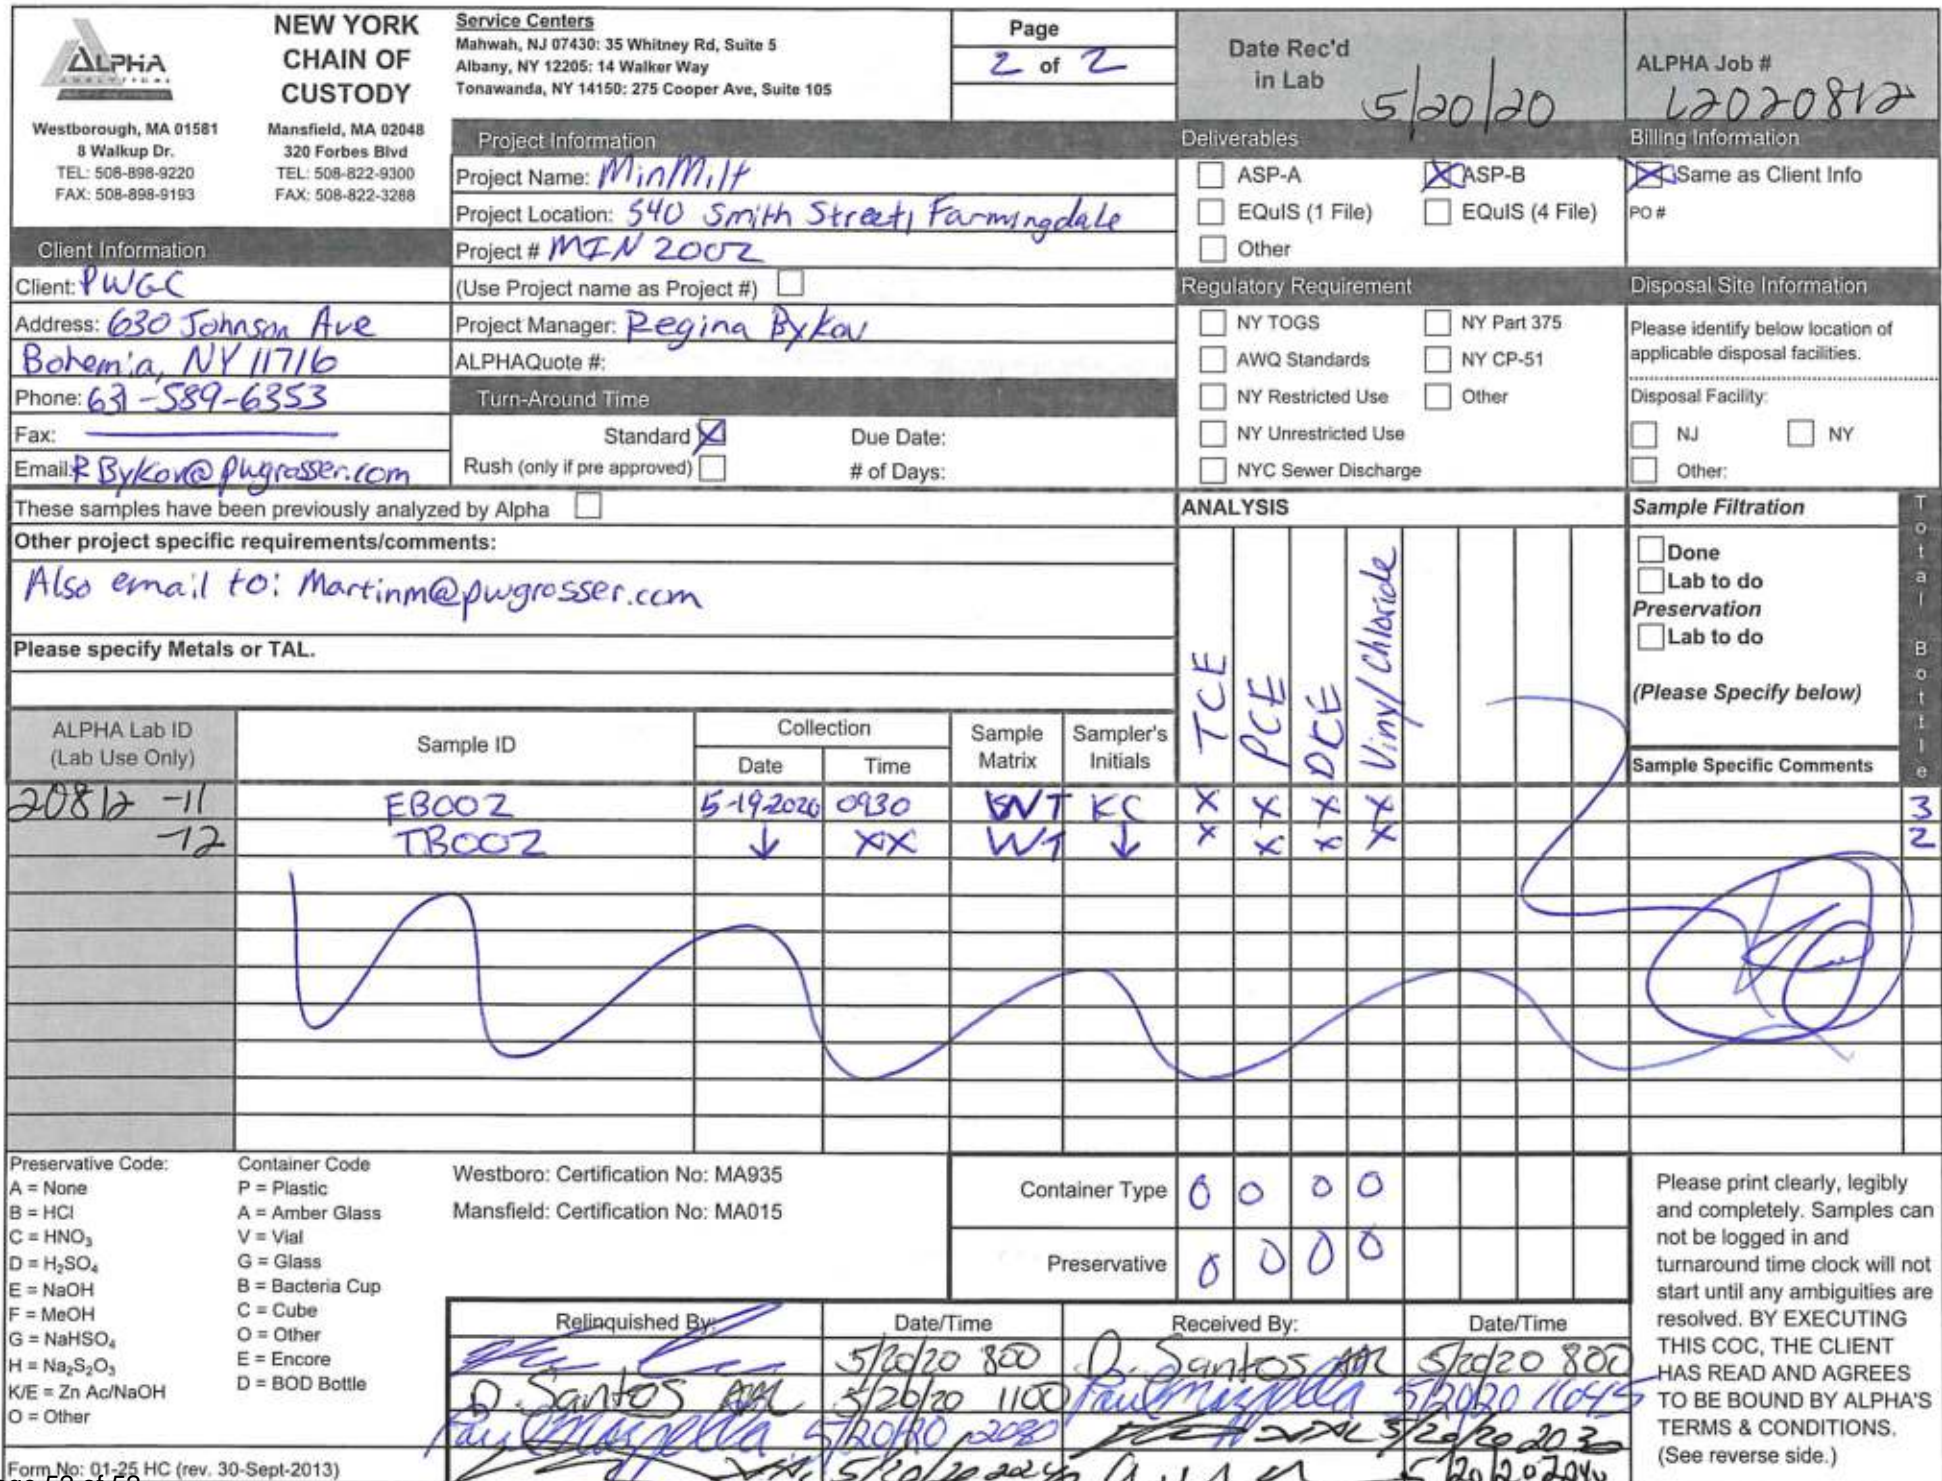 ALPHA
ANALYTICAL
Westborough, MA 01581
8 Walkup Dr.
TEL: 508-898-9220
FAX: 508-898-9193
NEW YORK
CHAIN OF
CUSTODY
Mansfield, MA 02048
320 Forbes Blvd
TEL: 508-822-9300
FAX: 508-822-3288
Service Centers
Mahwah, NJ 07430: 35 Whitney Rd, Suite 5
Albany, NY 12205: 14 Walker Way
Tonawanda, NY 14150: 275 Cooper Ave, Suite 105
Page
2 of 2
Date Rec'd
in Lab
5/20/20
ALPHA Job #
L2020812
Client Information
Client: PWGC
Address: 630 Johnson Ave
Bohemia, NY 11716
Phone: 631-589-6353
Fax:
Email: RBykov@pwgrosser.com
Project Information
Project Name: MinMilt
Project Location: 540 Smith Street, Farmingdale
Project # MIN 2002
(Use Project name as Project #)
Project Manager: Regina Bykov
ALPHAQuote #:
Turn-Around Time
Standard X Due Date:
Rush (only if pre approved) # of Days:
Deliverables
ASP-A X ASP-B
EQuIS (1 File) EQuIS (4 File)
Other
Regulatory Requirement
NY TOGS NY Part 375
AWQ Standards NY CP-51
NY Restricted Use Other
NY Unrestricted Use
NYC Sewer Discharge
Billing Information
X Same as Client Info
PO #
Disposal Site Information
Please identify below location of
applicable disposal facilities.
Disposal Facility:
NJ NY
Other:
These samples have been previously analyzed by Alpha
Other project specific requirements/comments:
Also email to: Martinm@pwgrosser.com
Please specify Metals or TAL.
ANALYSIS
TCE
PCE
DCE
Vinyl Chloride
Sample Filtration
Done
Lab to do
Preservation
Lab to do
(Please Specify below)
Total Bottle
ALPHA Lab ID
(Lab Use Only)
Sample ID
Collection
Date Time
Sample
Matrix
Sampler's
Initials
Sample Specific Comments
20812 -11 EB002 5-19-2020 0930 WT KC X X X X 3
-12 TB002 ↓ XX WT ↓ X X X X 2
Preservative Code:
A = None
B = HCl
C = HNO3
D = H2SO4
E = NaOH
F = MeOH
G = NaHSO4
H = Na2S2O3
K/E = Zn Ac/NaOH
O = Other
Container Code
P = Plastic
A = Amber Glass
V = Vial
G = Glass
B = Bacteria Cup
C = Cube
O = Other
E = Encore
D = BOD Bottle
Westboro: Certification No: MA935
Mansfield: Certification No: MA015
Container Type O O O O
Preservative O O O O
Relinquished By: Date/Time Received By: Date/Time
5/20/20 800 D. Santos AAL 5/20/20 800
D. Santos AAL 5/20/20 1100 Paul Mazzella 5/20/20
Paul Mazzella 5/20/20 5/20/20 2030
5/20/20
Please print clearly, legibly
and completely. Samples can
not be logged in and
turnaround time clock will not
start until any ambiguities are
resolved. BY EXECUTING
THIS COC, THE CLIENT
HAS READ AND AGREES
TO BE BOUND BY ALPHA'S
TERMS & CONDITIONS.
(See reverse side.)
Form No: 01-25 HC (rev. 30-Sept-2013)